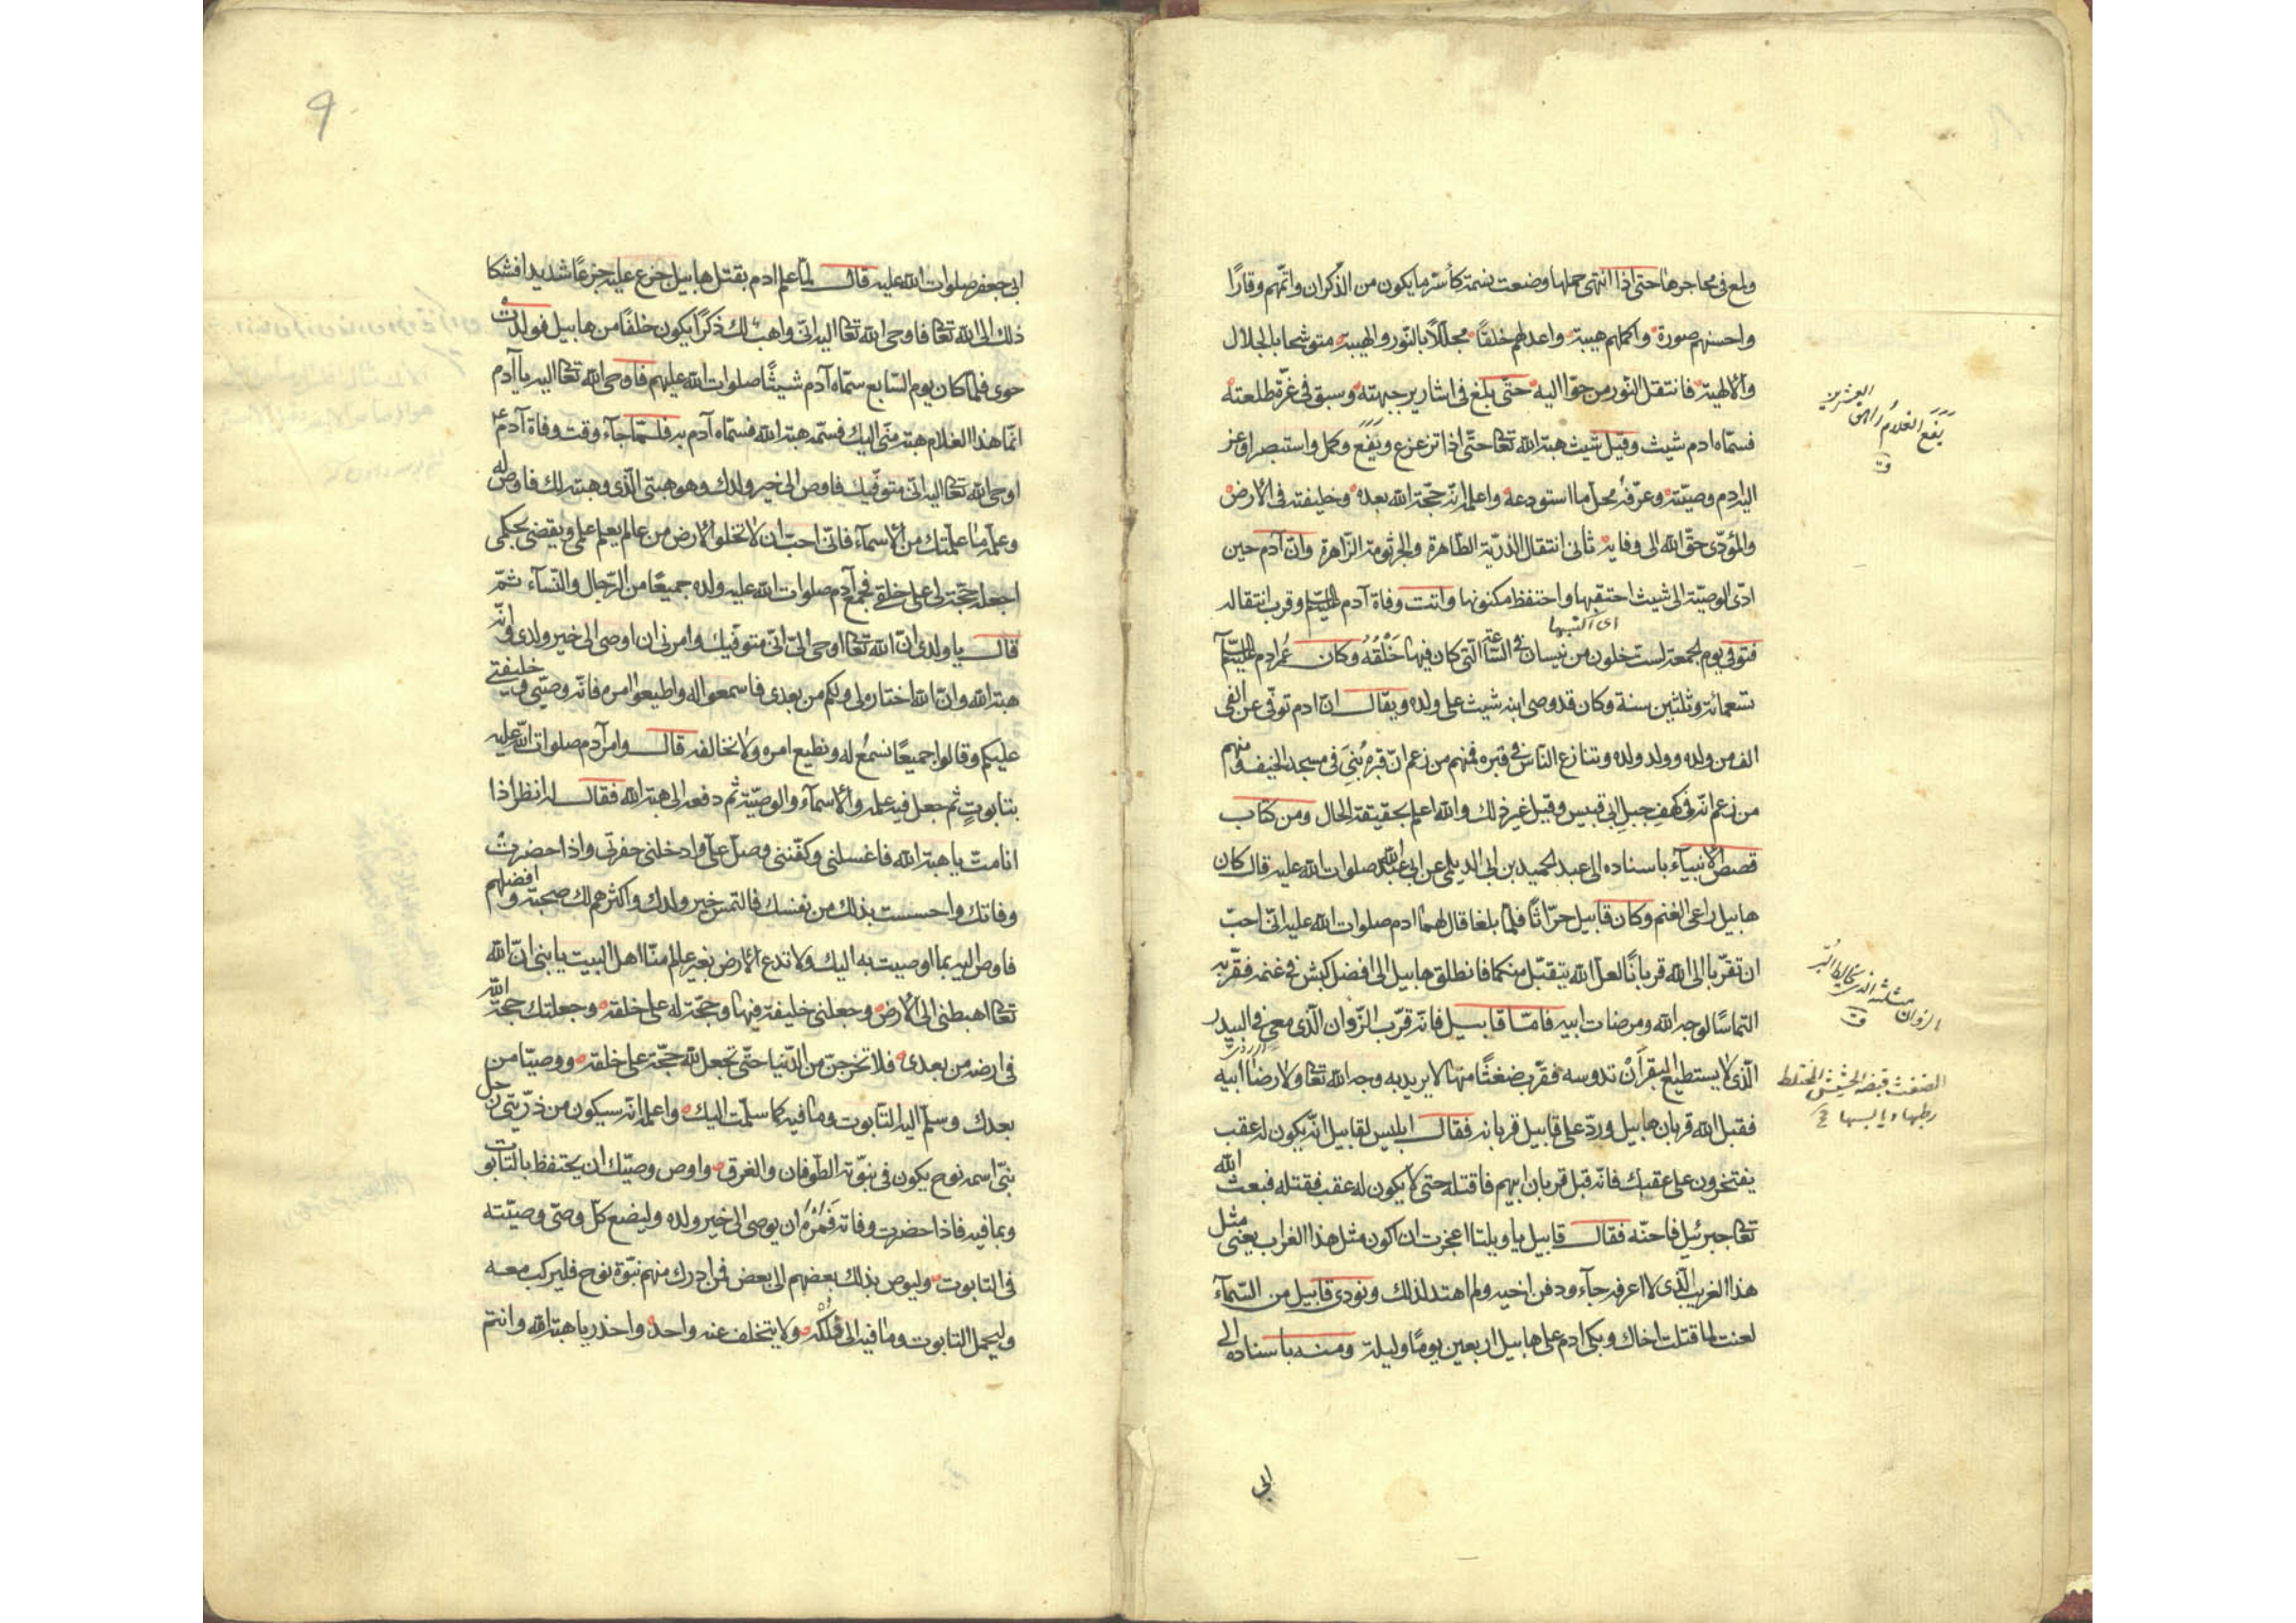 ولمع في محاجرها حتى اذا انتهى حملها وضعت نسمة كأسر ما يكون من الذكران واتمهم وقارًا
واحسنهم صورة واكملهم هيبة واعدلهم خلقًا مجللًا بالنور والهيبة متوشحا بالجلال
والالهية فانتقل النور من حوا اليه حتى بلغ في اشارير جبهته وسبق في غرة طلعته
فسماه ادم شيث وقيل شيث هبة الله تعا حتى اذا ترعرع ويفع وكمل واستبصر اوعز
اليه ادم وصيته وعرفه محل ما استودعه واعلمه انه حجة الله بعده وخليفته في الارض
والمؤدى حق الله الى وفايه ثانى انتقال الذرية الطاهرة والجرثومة الزاهرة وان آدم حين
ادى الوصية الى شيث احتقبها واحتفظ مكنونها واتت وفاة آدم عليه السلام وقرب انتقاله
اى اكتسبها
فتوفي يوم الجمعة لست خلون من نيسان في الساعة التى كان فيها خلقه وكان عمر ادم عليه السلام
تسعمائة وثلثين سنة وكان قد وصى ابنه شيث على ولده ويقال ان ادم توفي عن الفى
الف من ولده وولد ولده وتنازع الناس في قبره فمنهم من زعم ان قبره بنى في مسجد الخيف ومنهم
من زعم انه في كهف جبل ابى قبيس وقيل غير ذلك والله اعلم بحقيقة الحال ومن كتاب
قصص الانبياء باسناده الى عبد الحميد بن ابى الديلمى عن ابى عبد الله صلوات الله عليه قال كان
هابيل راعى الغنم وكان قابيل حراثًا فلما بلغا قال لهما ادم صلوات الله عليه انى احب
ان تقربا الى الله قربانًا لعل الله يتقبل منكما فانطلق هابيل الى افضل كبش في غنمه فقربه
التماسًا لوجه الله ومرضات ابيه فاما قابيل فانه قرب الزوان الذى معى في البيدر
الذى لا يستطيع البقر ان تدوسه فقرب ضغثًا منها لا يريد به وجه الله تعا ولا رضا ابيه
فقبل الله قربان هابيل ورد على قابيل قربانه فقال ابليس لقابيل انه يكون له عقب
يفتخرون على عقبك فانه قبل قربان ابيهم فاقتله حتى لا يكون له عقب فقتله فبعث الله
تعا جبرئيل فاجنه فقال قابيل يا ويلتا اعجزت ان اكون مثل هذا الغراب يعنى مثل
هذا الغريب الذى لا اعرفه جآء ودفن اخيه ولم اهتد لذلك ونودى قابيل من السمآء
لعنت لما قتلت اخاك وبكى ادم على هابيل اربعين يومًا وليلة ومنه باسناده الى
ابى
يفع الغلام راهق العشرين
الزوان مثلثة الذى يخالط البر
الضغث قبضة الحشيش المختلط
رطبها ويابسها
9
ابى جعفر صلوات الله عليه قال لما علم ادم بقتل هابيل جزع عليه جزعًا شديدا فشكا
ذلك الى الله تعا فاوحى الله تعا اليه انى واهب لك ذكرًا يكون خلفًا من هابيل فولدت
حوى فلما كان يوم السابع سماه آدم شيثًا صلوات الله عليهم فاوحى الله تعا اليه يا آدم
انما هذا الغلام هبة منى اليك فسمه هبة الله فسماه آدم به فلما جآء وقت وفاة آدم
اوحى الله تعا اليه انى متوفيك فاوص الى خير ولدك وهو هبتى الذى وهبته لك فاوص له
وعلمه ما علمتك من الاسمآء فانى احب ان لا تخلو الارض من عالم يعلم علمى ويقضى بحكمى
اجعله حجة لى على خلقى فجمع آدم صلوات الله عليه ولده جميعًا من الرجال والنسآء ثم
قال يا ولدى ان الله تعا اوحى الى انى متوفيك وامرنى ان اوصى الى خير ولدى وانه
هبة الله وان الله اختاره لى ولكم من بعدى فاسمعوا له واطيعوا امره فانه وصيى وخليفتى
عليكم وقالوا جميعًا نسمع له ونطيع امره ولا نخالفه قال وامر آدم صلوات الله عليه
بتابوت ثم جعل فيه علمه والاسمآء والوصية ثم دفعه الى هبة الله فقال له انظر اذا
انا مت يا هبة الله فاغسلنى وكفننى وصل على وادخلنى حفرتى واذا حضرت
وفاتك واحسست بذلك من نفسك فالتمس خير ولدك واكثرهم لك صحبة وافضلهم
فاوص اليه بما اوصيت به اليك ولا تدع الارض بغير عالم منا اهل البيت يا بنى ان الله
تعا اهبطنى الى الارض وجعلنى خليفة فيها وحجة له على خلقه وجعلتك حجة الله
في ارضه من بعدى فلا تخرجن من الدنيا حتى تجعل لله حجة على خلقه ووصيا من
بعدك وسلم اليه التابوت وما فيه كما سلمت اليك واعلمه انه سيكون من ذريتى رجل
نبى اسمه نوح يكون في نبوته الطوفان والغرق واوص وصيتك ان يحتفظ بالتابوت
وبما فيه فاذا حضرت وفاته فمره ان يوصى الى خير ولده وليضع كل وصى وصيته
في التابوت وليوص بذلك بعضهم الى بعض فمن ادرك منهم نبوة نوح فليركب معه
وليحمل التابوت وما فيه الى فلكه ولا يتخلف عنه واحد واحذر يا هبة الله وانتم